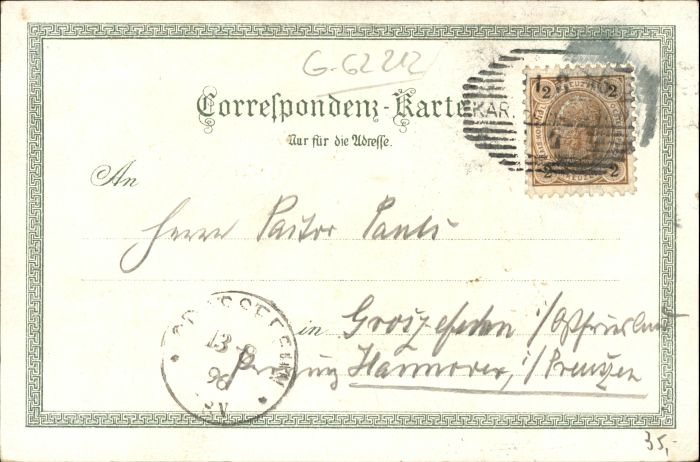 G-62212
Correspondenz-Karte
Nur für die Adresse.
2 2
KAR.
2 2
An
Herrn Pastor Pauls
in Groszefehn i/Ostfriesland
Provinz Hannover, i/Preuszen
GROSSEFEHN
13 8
96
8V
35,-